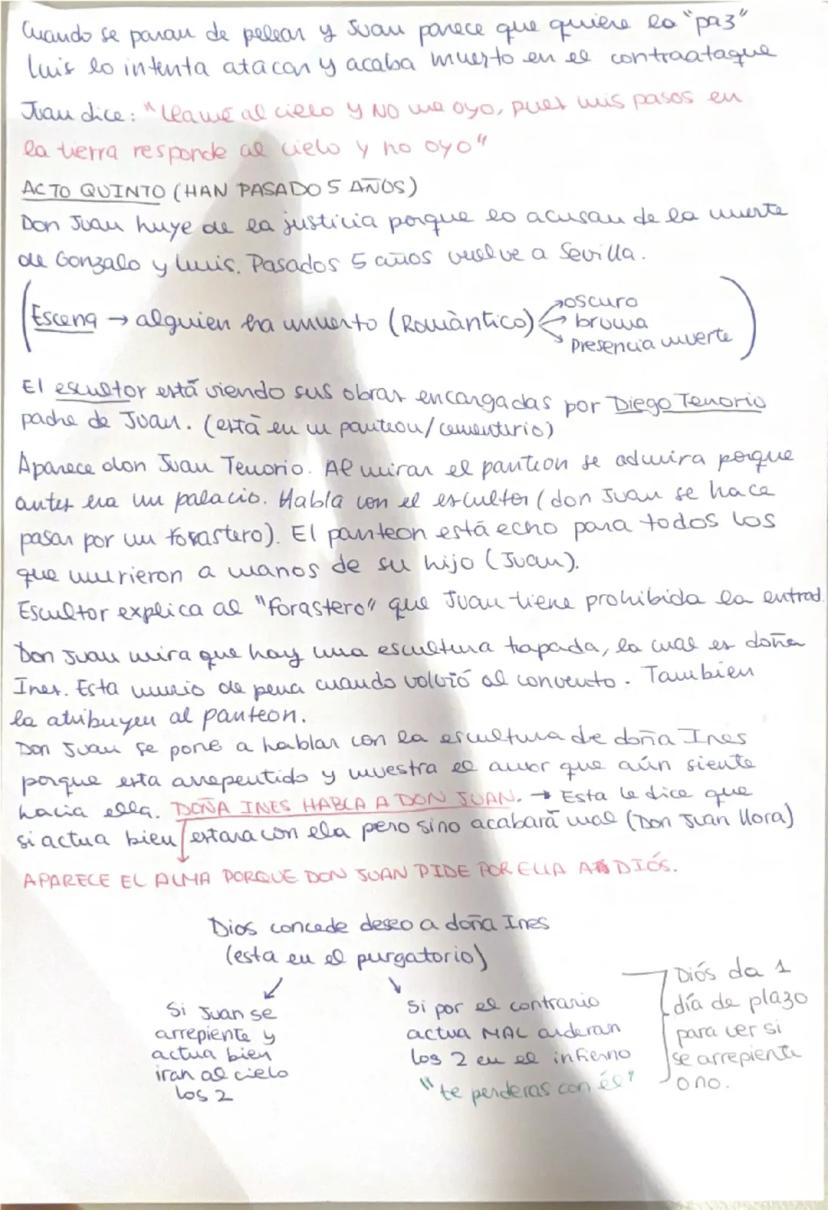 Cuando se paran de pelear y Juan parece que quiere la "paz"
Luis lo intenta atacar y acaba muerto en el contraataque
Juan dice: "Llamé al cielo y NO me oyo, pues mis pasos en
la tierra responde al cielo y no oyo"
ACTO QUINTO (HAN PASADO 5 AÑOS)
Don Juan huye de la justicia porque lo acusan de la muerte
de Gonzalo y Luis. Pasados 5 años vuelve a Sevilla.
(Escena → alguien ha muerto (Romàntico) → oscuro
→ bruma
→ presencia muerte)
El escultor está viendo sus obras encargadas por Diego Tenorio
padre de Juan. (está en un panteon/cementirio)
Aparece don Juan Tenorio. Al mirar el panteon se admira porque
antes era un palacio. Habla con el escultor (don Juan se hace
pasar por un forastero). El panteon está echo para todos los
que murieron a manos de su hijo (Juan).
Escultor explica al "forastero" que Juan tiene prohibida la entrad
Don Juan mira que hay una escultura tapada, la cual es doña
Ines. Esta murio de pena cuando volvió al convento. Tambien
la atribuyen al panteon.
Don Juan se pone a hablar con la escultura de doña Ines
porque esta arrepentido y muestra el amor que aún siente
hacia ella. DOÑA INES HABLA A DON JUAN. → Esta le dice que
si actua bien estara con ela pero sino acabará mal (Don Juan llora)
APARECE EL ALMA PORQUE DON JUAN PIDE POR ELLA A DIÓS.
Dios concede deseo a doña Ines
(esta en el purgatorio)
Si Juan se
arrepiente y
actua bien
iran al cielo
los 2
Si por el contrario
actua MAL arderan
los 2 en el infierno
"te perderas con él"
Diós da 1
día de plazo
para ver si
se arrepiente
o no.